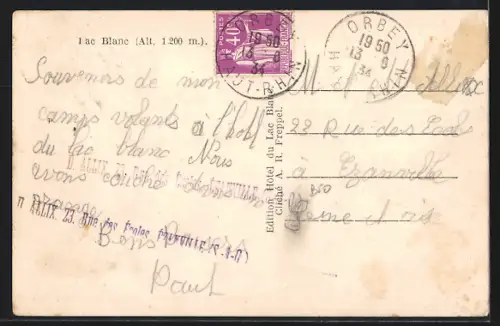 Lac Blanc (Alt. 1200 m.).
POSTES 40c
ORBEY
19 50
13 6
34
HAUT-RHIN
ORBEY
19 50
13 6
34
RHIN
Souvenirs de mon
camps volants à l'hotel
du lac blanc Nous
avons couché
Bons Baisers
Paul
Edition Hôtel du Lac Blanc
Cliché A. R. Freppel.
M et Allix
22 Rue des Ecoles
à Ezanville
Seine et oise
ALLIX, 23, Rue des Ecoles EZANVILLE (S.-&-O.)